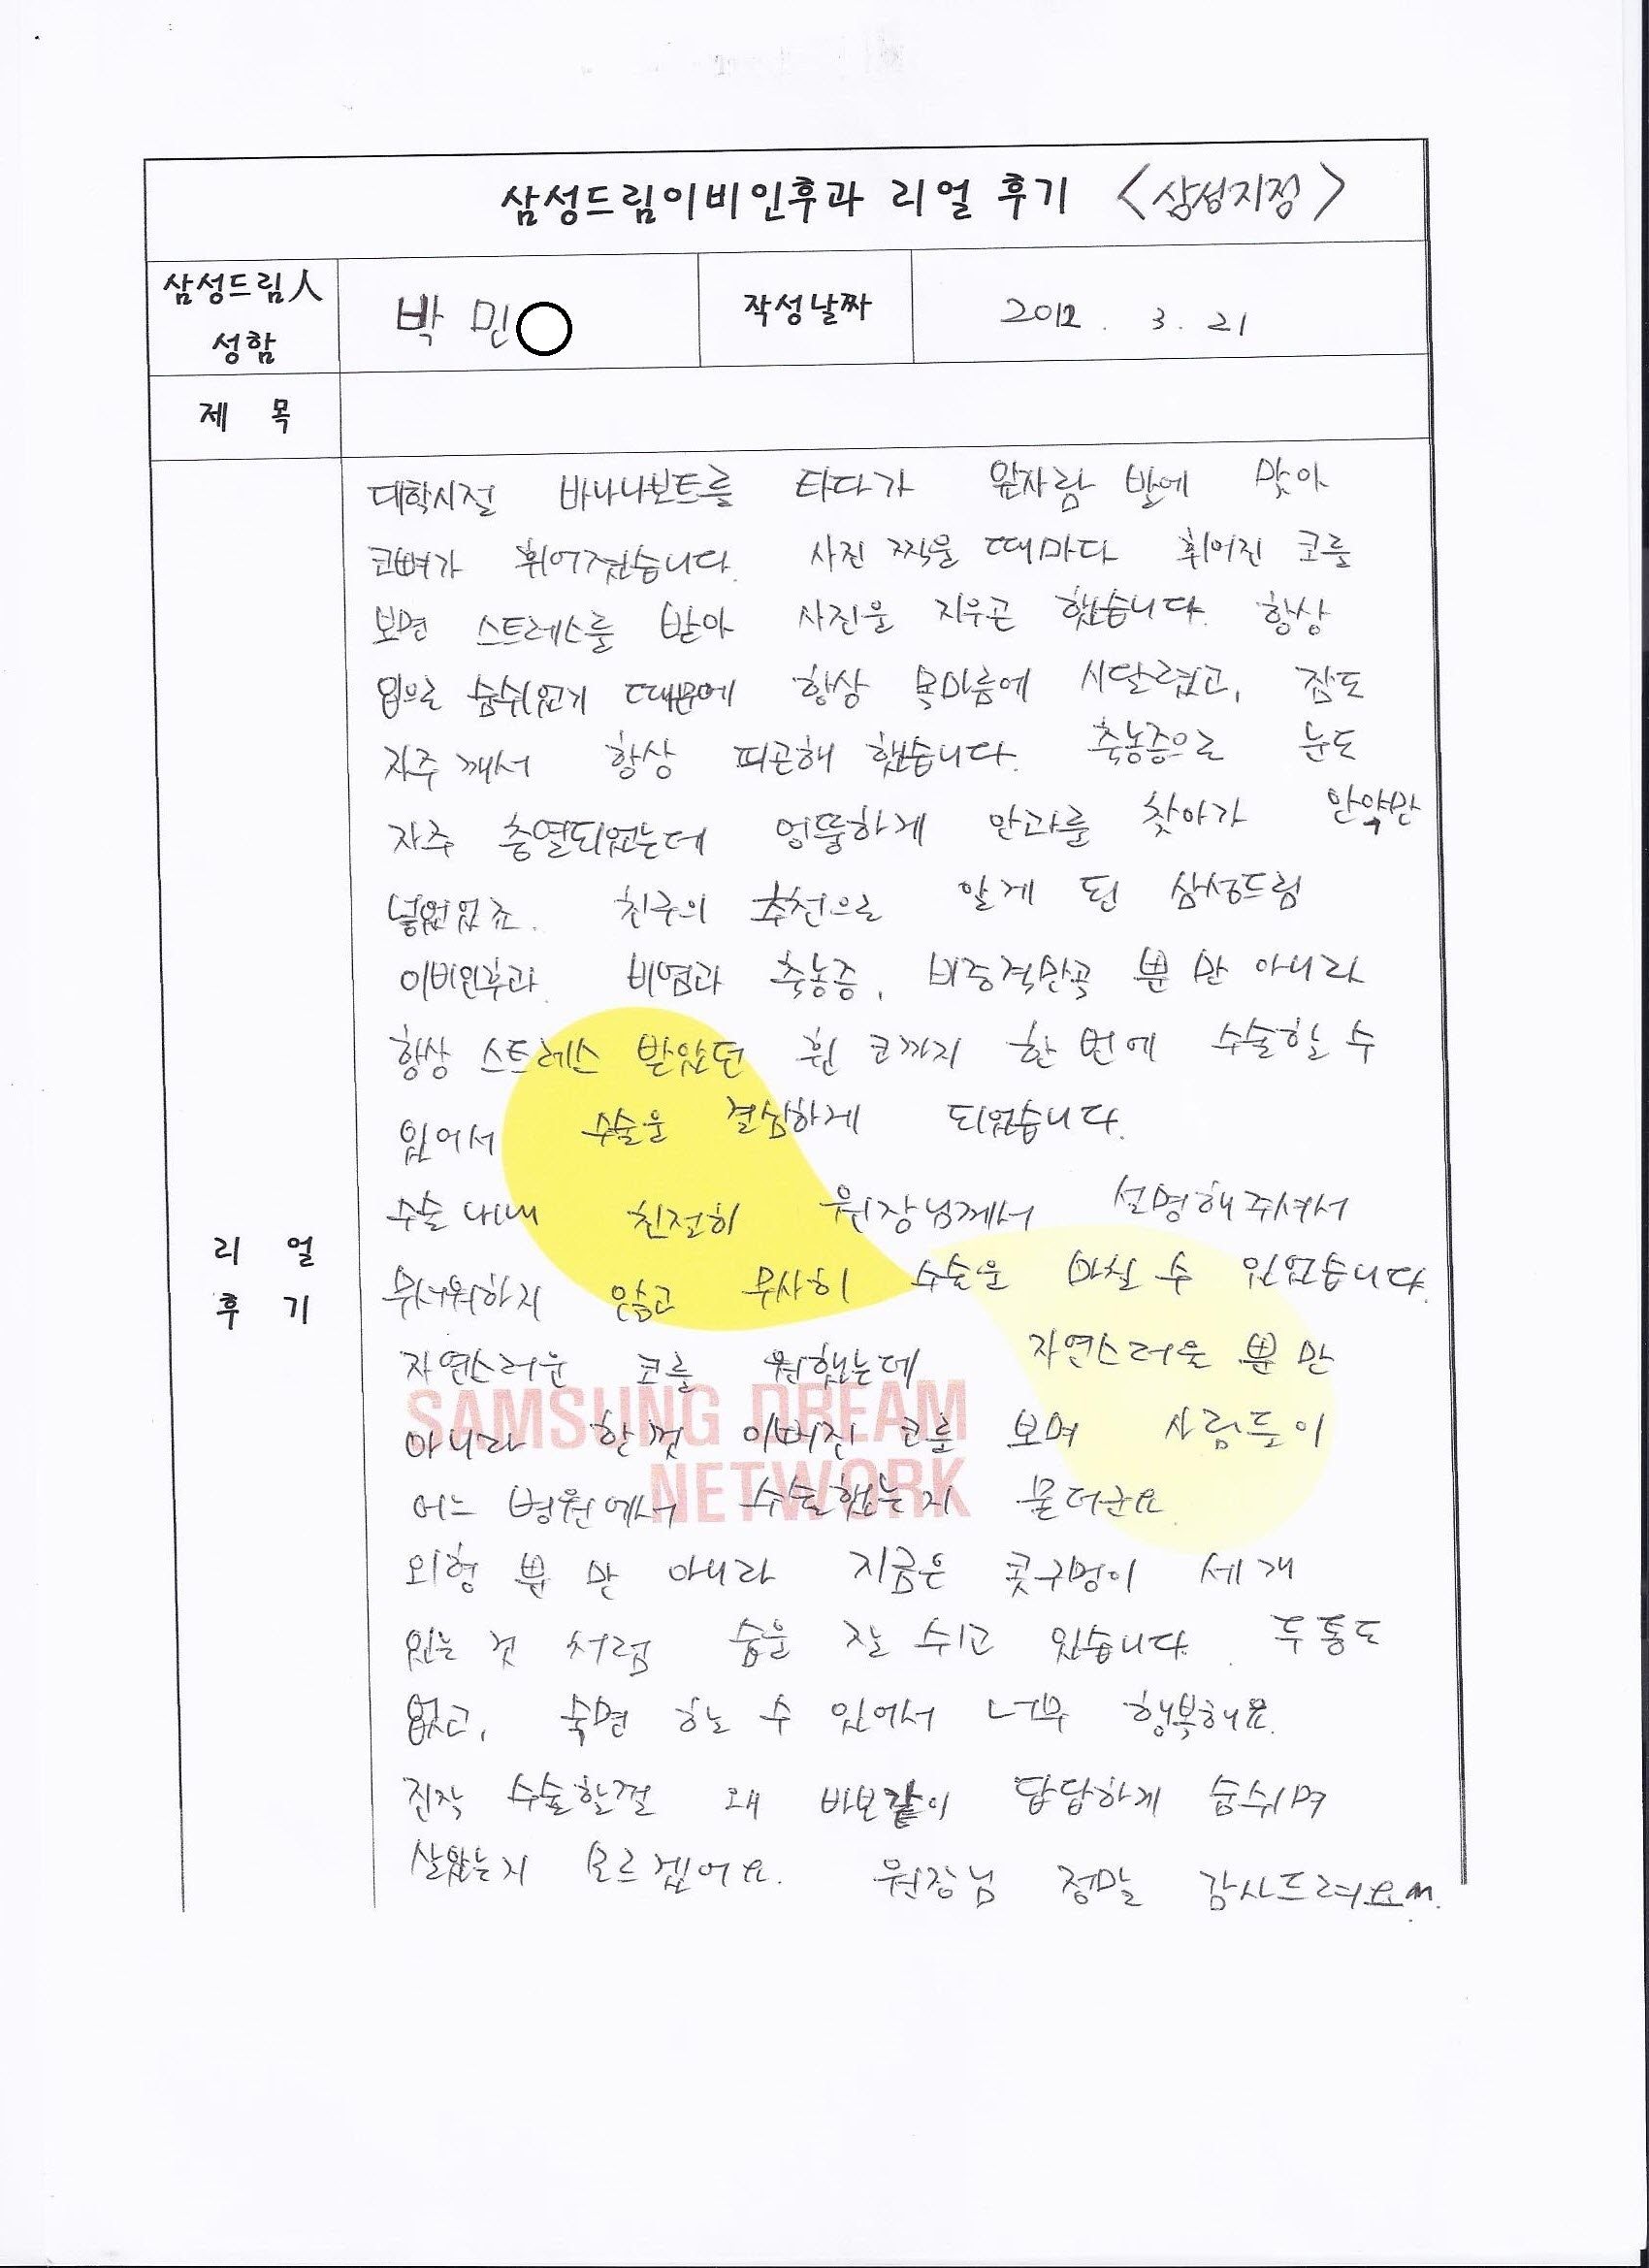 삼성드림이비인후과 리얼 후기 <삼성지정>
삼성드림人 성함 박 민○ 작성날짜 2012. 3. 21
제 목
대학시절 바나나보트를 타다가 앞사람 발에 맞아
코뼈가 휘어졌습니다. 사진 찍을 때마다 휘어진 코를
보면 스트레스를 받아 사진을 지우곤 했습니다. 항상
입으로 숨쉬었기 때문에 항상 목마름에 시달렸고, 잠도
자주 깨서 항상 피곤해 했습니다. 축농증으로 눈도
자주 충열되었는데 엉뚱하게 안과를 찾아가 안약만
넣었었죠. 친구의 추천으로 알게 된 삼성드림
이비인후과. 비염과 축농증, 비중격만곡 뿐 만 아니라
항상 스트레스 받았던 휜 코까지 한 번에 수술할 수
있어서 수술을 결심하게 되었습니다.
수술 내내 친절히 원장님께서 설명해주셔서
무서워하지 않고 무사히 수술을 마칠 수 있었습니다.
자연스러운 코를 원했는데 자연스러운 뿐 만
아니라 한껏 이뻐진 코를 보며 사람들이
어느 병원에서 수술했는지 묻더군요
외형 뿐 만 아니라 지금은 콧구멍이 세개
있는 것 처럼 숨을 잘 쉬고 있습니다. 두통도
없고, 숙면 하는 수 있어서 너무 행복해요.
진작 수술할껄 왜 바보같이 답답하게 숨쉬며
살았는지 모르겠어요. 원장님 정말 감사드려요^^.
리 얼
후 기
SAMSUNG DREAM
NETWORK